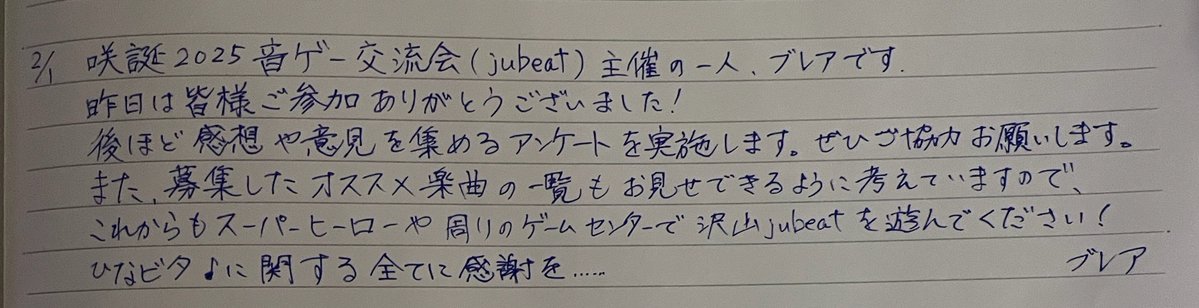 2/1 咲誕2025音ゲー交流会(jubeat)主催の一人、ブレアです.
昨日は皆様ご参加ありがとうございました!
後ほど感想や意見を集めるアンケートを実施します。ぜひご協力お願いします。
また、募集したオススメ楽曲の一覧もお見せできるように考えていますので、
これからもスーパーヒーローや周りのゲームセンターで沢山jubeatを遊んでください!
ひなビタ♪に関する全てに感謝を…… ブレア